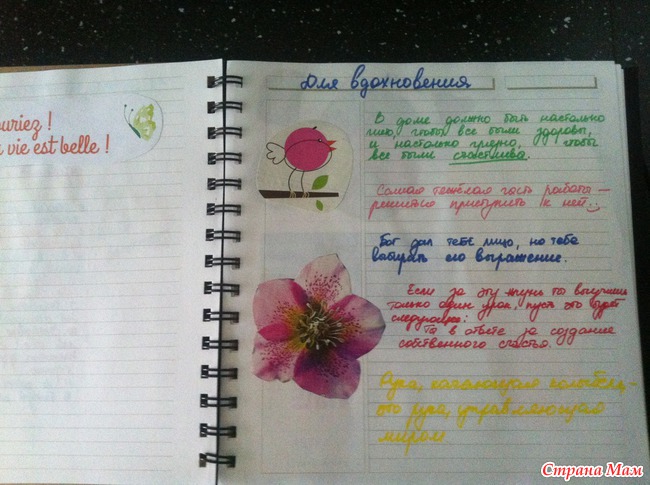 ouriez !
vie est belle !
Для вдохновения
В доме должно быть настолько
чисто, чтобы все были здоровы,
и настолько грязно, чтобы
все были счастливы.
Самая тяжёлая часть работы —
решиться приступить к ней..
Бог дал тебе лицо, но тебе
выбирать его выражение.
Если за эту жизнь ты выучишь
только один урок, пусть это будет
следующее:
Ты в ответе за создание
собственного счастья.
Рука, качающая колыбель -
это рука, управляющая
миром
Страна Мам